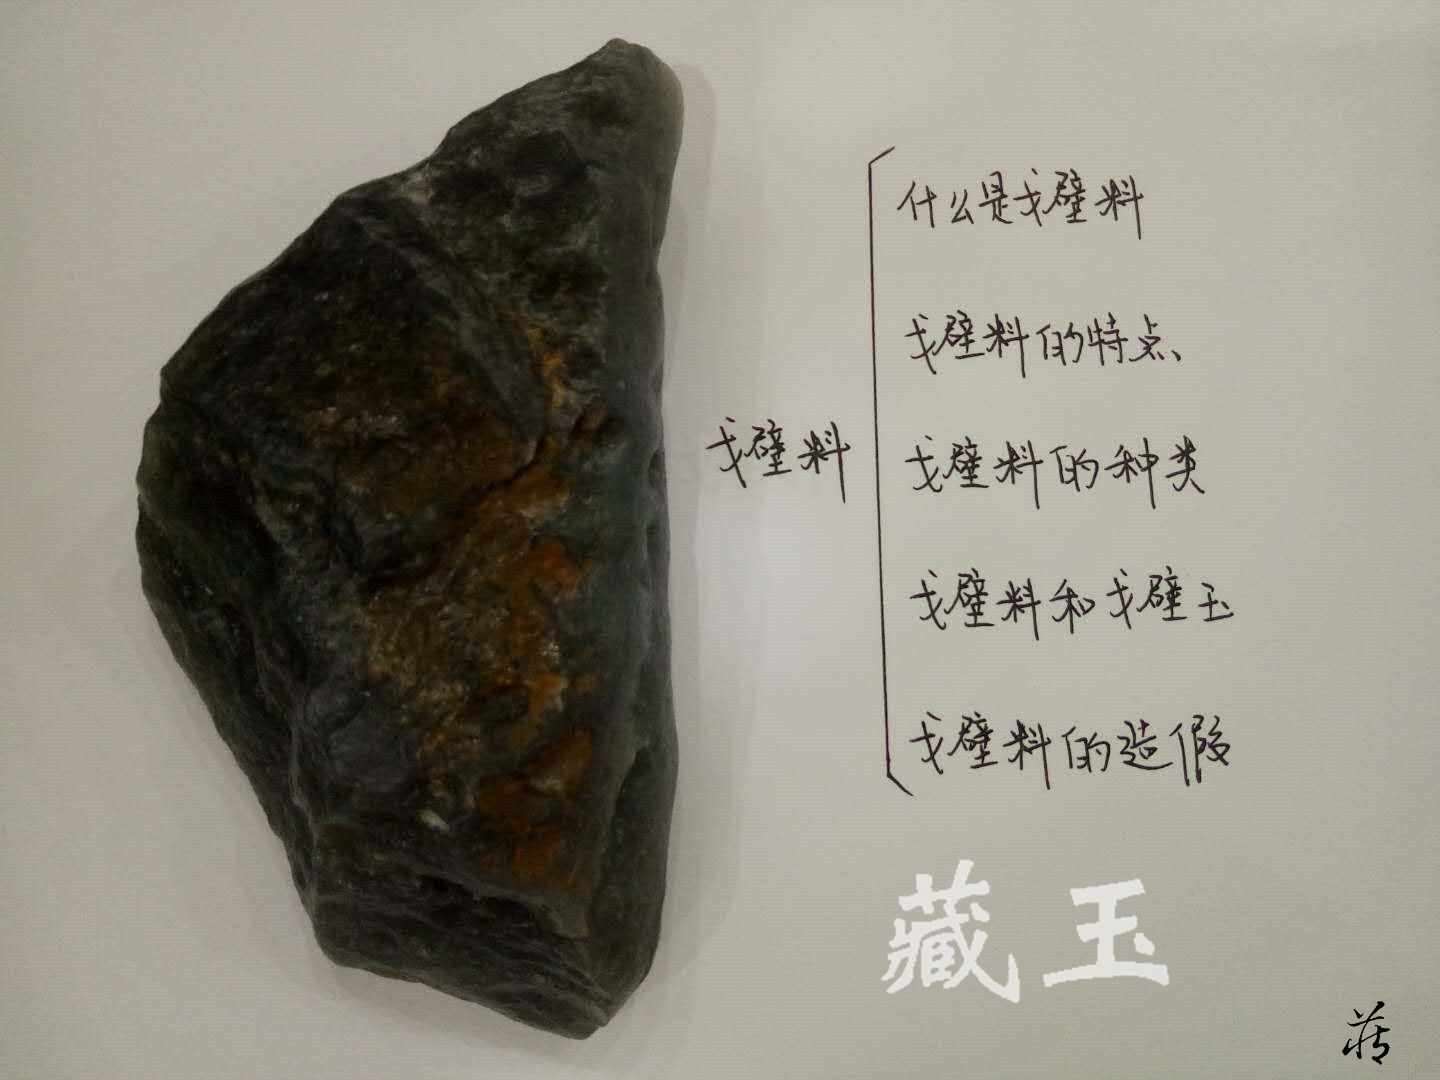 戈壁料
什么是戈壁料
戈壁料的特点、
戈壁料的种类
戈壁料和戈壁玉
戈壁料的造假
藏玉